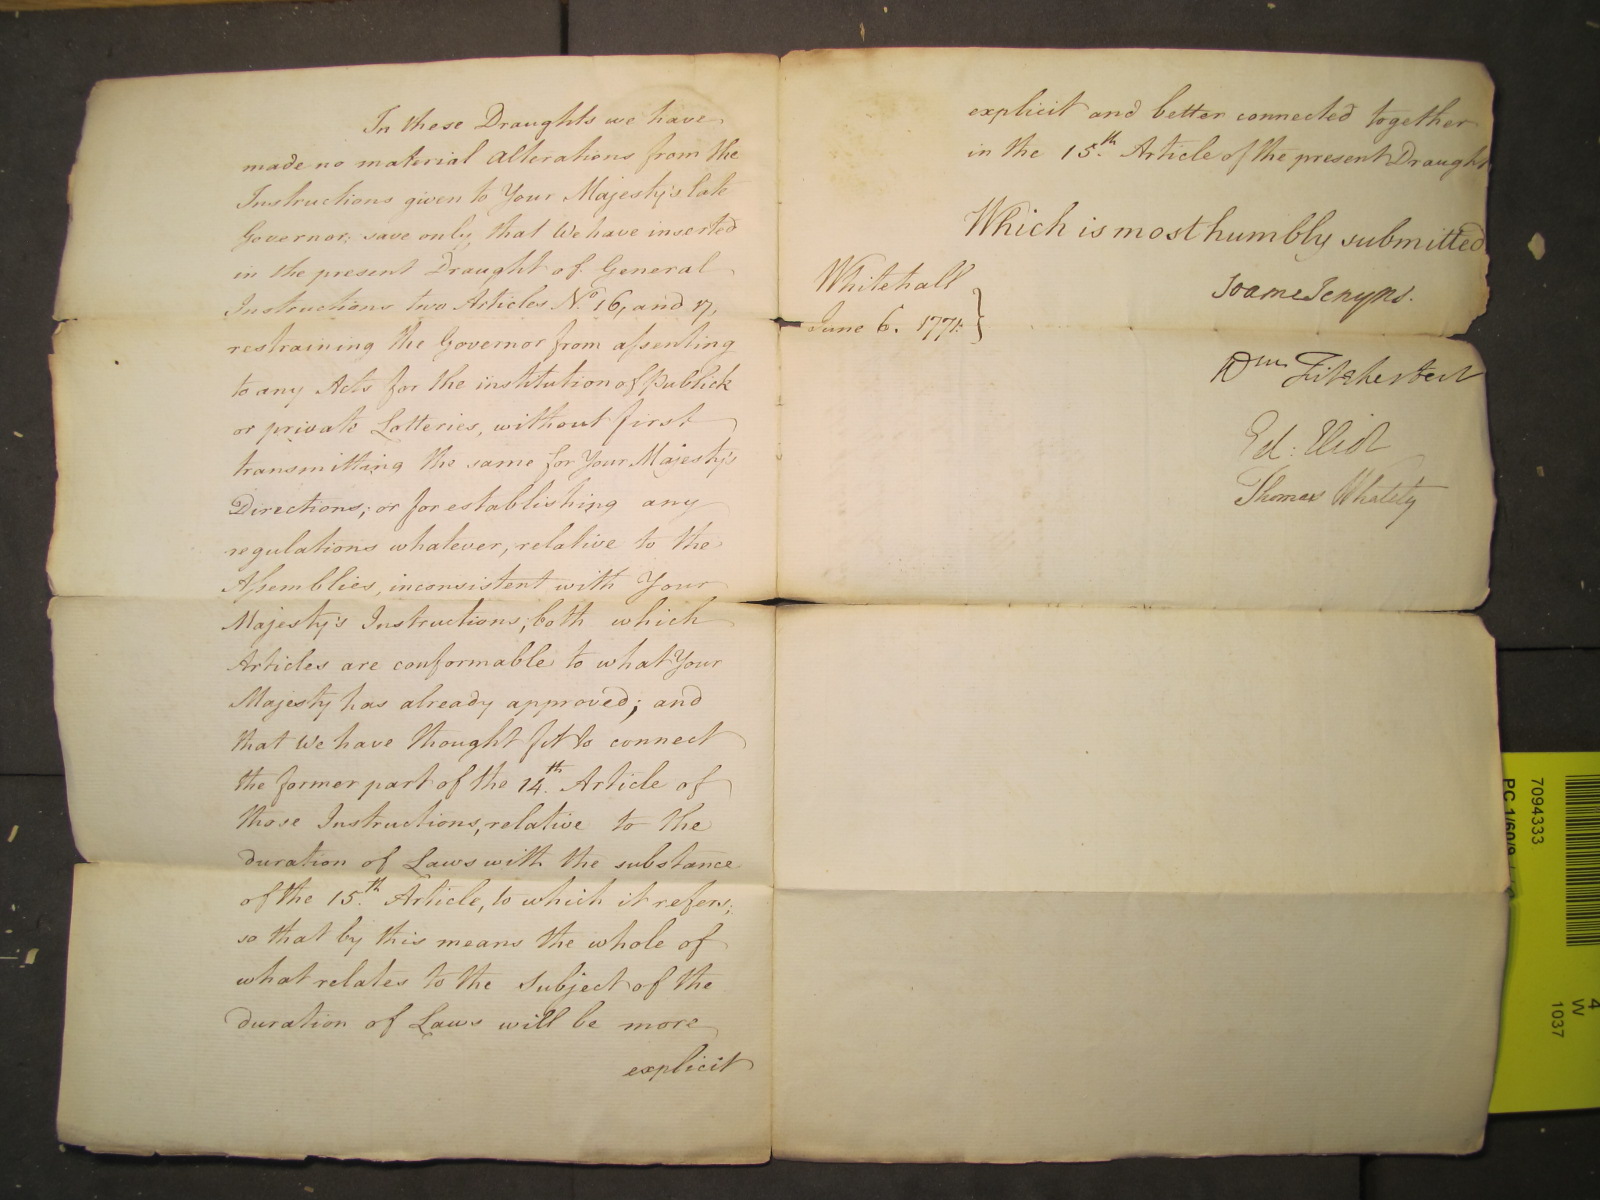 In these Draughts we have
made no material alterations from the
Instructions given to Your Majesty's late
Governor; save only, that We have inserted
in the present Draught of General
Instructions two Articles No. 16, and 17,
restraining the Governor from assenting
to any Acts for the institution of publick
or private Lotteries, without first
transmitting the same for Your Majesty's
Directions; or for establishing any
regulations whatever, relative to the
Assemblies, inconsistent with Your
Majesty's Instructions; both which
Articles are conformable to what Your
Majesty has already approved; and
that We have thought fit to connect
the former part of the 14th. Article of
those Instructions, relative to the
duration of Laws with the substance
of the 15th. Article, to which it refers;
so that by this means the whole of
what relates to the Subject of the
duration of Laws will be more
explicit
explicit and better connected together
in the 15th. Article of the present Draught
Which is most humbly submitted
Whitehall
June 6. 1771.
Soame Jenyns.
Wm Fitzherbert
Ed: Eliot
Thomas Whately
7094333
PC 1/60/9
4
W
1037